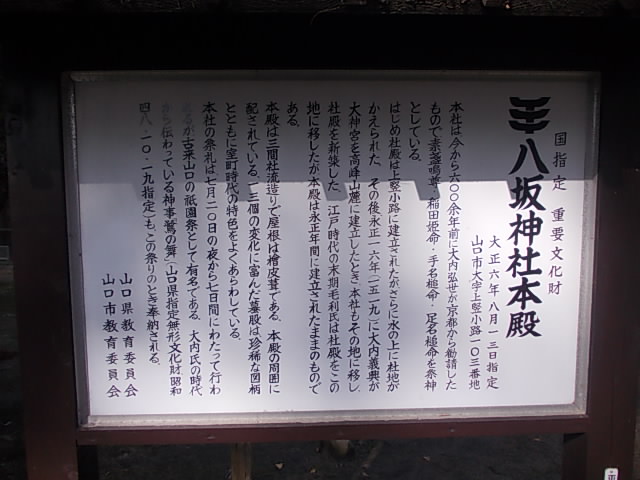 国指定 重要文化財
八坂神社本殿
大正六年八月一三日指定
山口市大字上竪小路一〇三番地
本社は今から六〇〇余年前に大内弘世が京都から勧請した
もので素盞嗚尊・稲田姫命・手名槌命・足名槌命を祭神
としている。
はじめ社殿は上竪小路に建立されたがさらに水の上に社地が
かえられた。その後永正一六年(一五一九)に大内義興が
大神宮を高峰山麓に建立したとき、本社もその地に移し、
社殿を新築した。江戸時代の末期毛利氏は社殿をこの
地に移したが本殿は永正年間に建立されたままのもので
ある。
本殿は三間社流造りで屋根は檜皮葺である。本殿の周囲に
配されている一三個の変化に富んだ蟇股は、珍稀な図柄
とともに室町時代の特色をよくあらわしている。
本社の祭礼は七月二〇日の夜から七日間にわたって行わ
るが古来山口の祇園祭として有名である。大内氏の時代
から伝わっている神事「鷺の舞」(山口県指定無形文化財昭和
四八・一〇・一九指定)も、この祭りのとき奉納される。
山口県教育委員会
山口市教育委員会